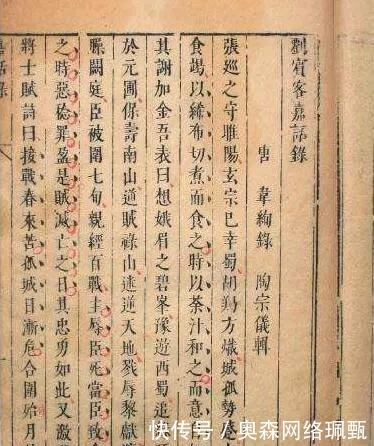 劉賓客嘉話錄
唐 韋絢錄 陶宗儀輯
張巡之守睢陽玄宗巳幸蜀胡羯方熾城孤勢蹙
食竭以緜布切煮而食之時以茶汁和之而意
其謝加金吾表曰想娥眉之碧峯豫遊西蜀追
於元圃保壽南山道賊祿山迷逆天地戮辱黎獻
臊闕庭臣被圍七旬親經百戰主辱臣死當臣致
之時惡稔罪盈是賊滅亡之日其忠勇如此又激
將士賦詩曰接戰春來苦孤城日漸危合圍始月
話錄
快传号/奥森网络珮甄